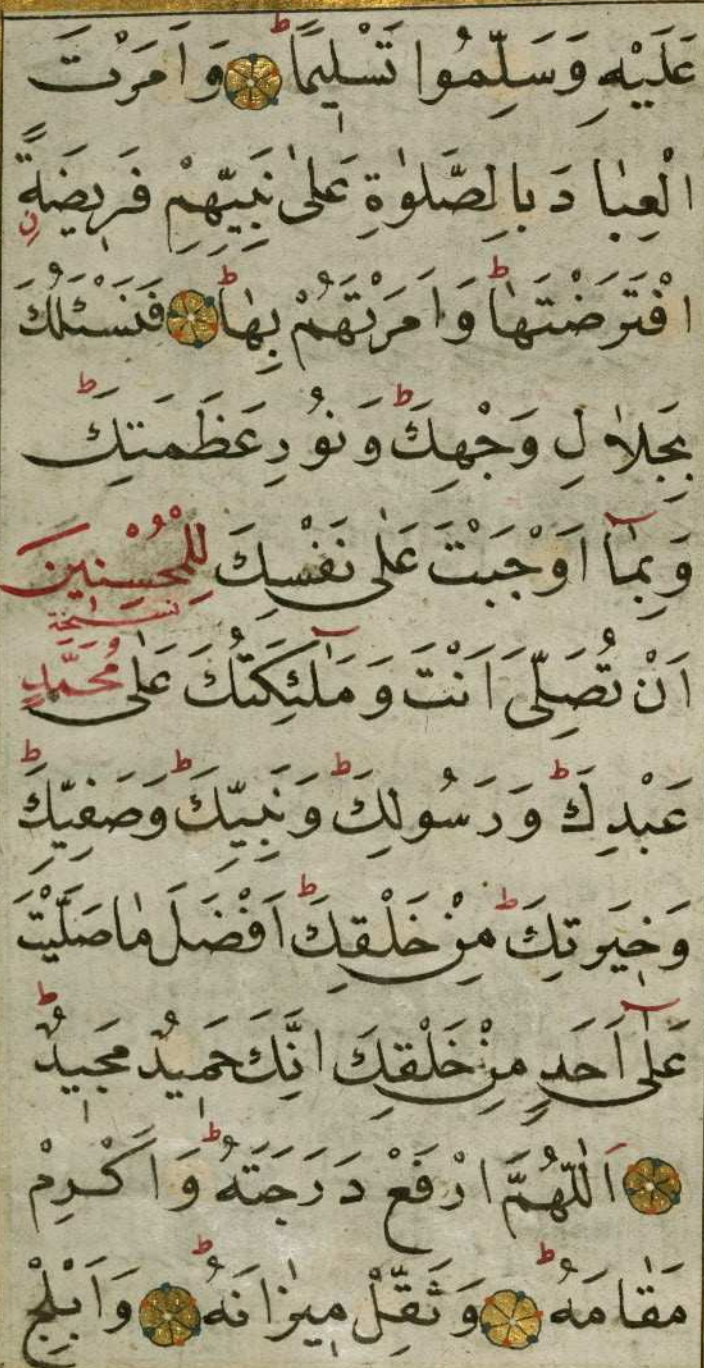 عَلَيْهِ وَسَلِّمُوا تَسْلِيمًا ط وَاَمَرْتَ
الْعِبَادَ بِالصَّلٰوةِ عَلٰى نَبِيِّهِمْ فَرِيضَةً
افْتَرَضْتَهَا ط وَاَمَرْتَهُمْ بِهَا ط فَنَسْئَلُكَ
بِجَلَالِ وَجْهِكَ ط وَنُورِ عَظَمَتِكَ ط
وَبِمَا اَوْجَبْتَ عَلٰى نَفْسِكَ لِلْمُحْسِنِينَ
نسخة
اَنْ تُصَلِّيَ اَنْتَ وَمَلٰئِكَتُكَ عَلٰى مُحَمَّدٍ
عَبْدِكَ ط وَرَسُولِكَ ط وَنَبِيِّكَ ط وَصَفِيِّكَ ط
وَخِيَرَتِكَ ط مِنْ خَلْقِكَ ط اَفْضَلَ مَا صَلَّيْتَ
عَلٰى اَحَدٍ مِنْ خَلْقِكَ اِنَّكَ حَمِيدٌ مَجِيدٌ ط
اَللّٰهُمَّ ارْفَعْ دَرَجَتَهُ ط وَاَكْرِمْ
مَقَامَهُ ط وَثَقِّلْ مِيزَانَهُ ط وَاَبْلِجْ